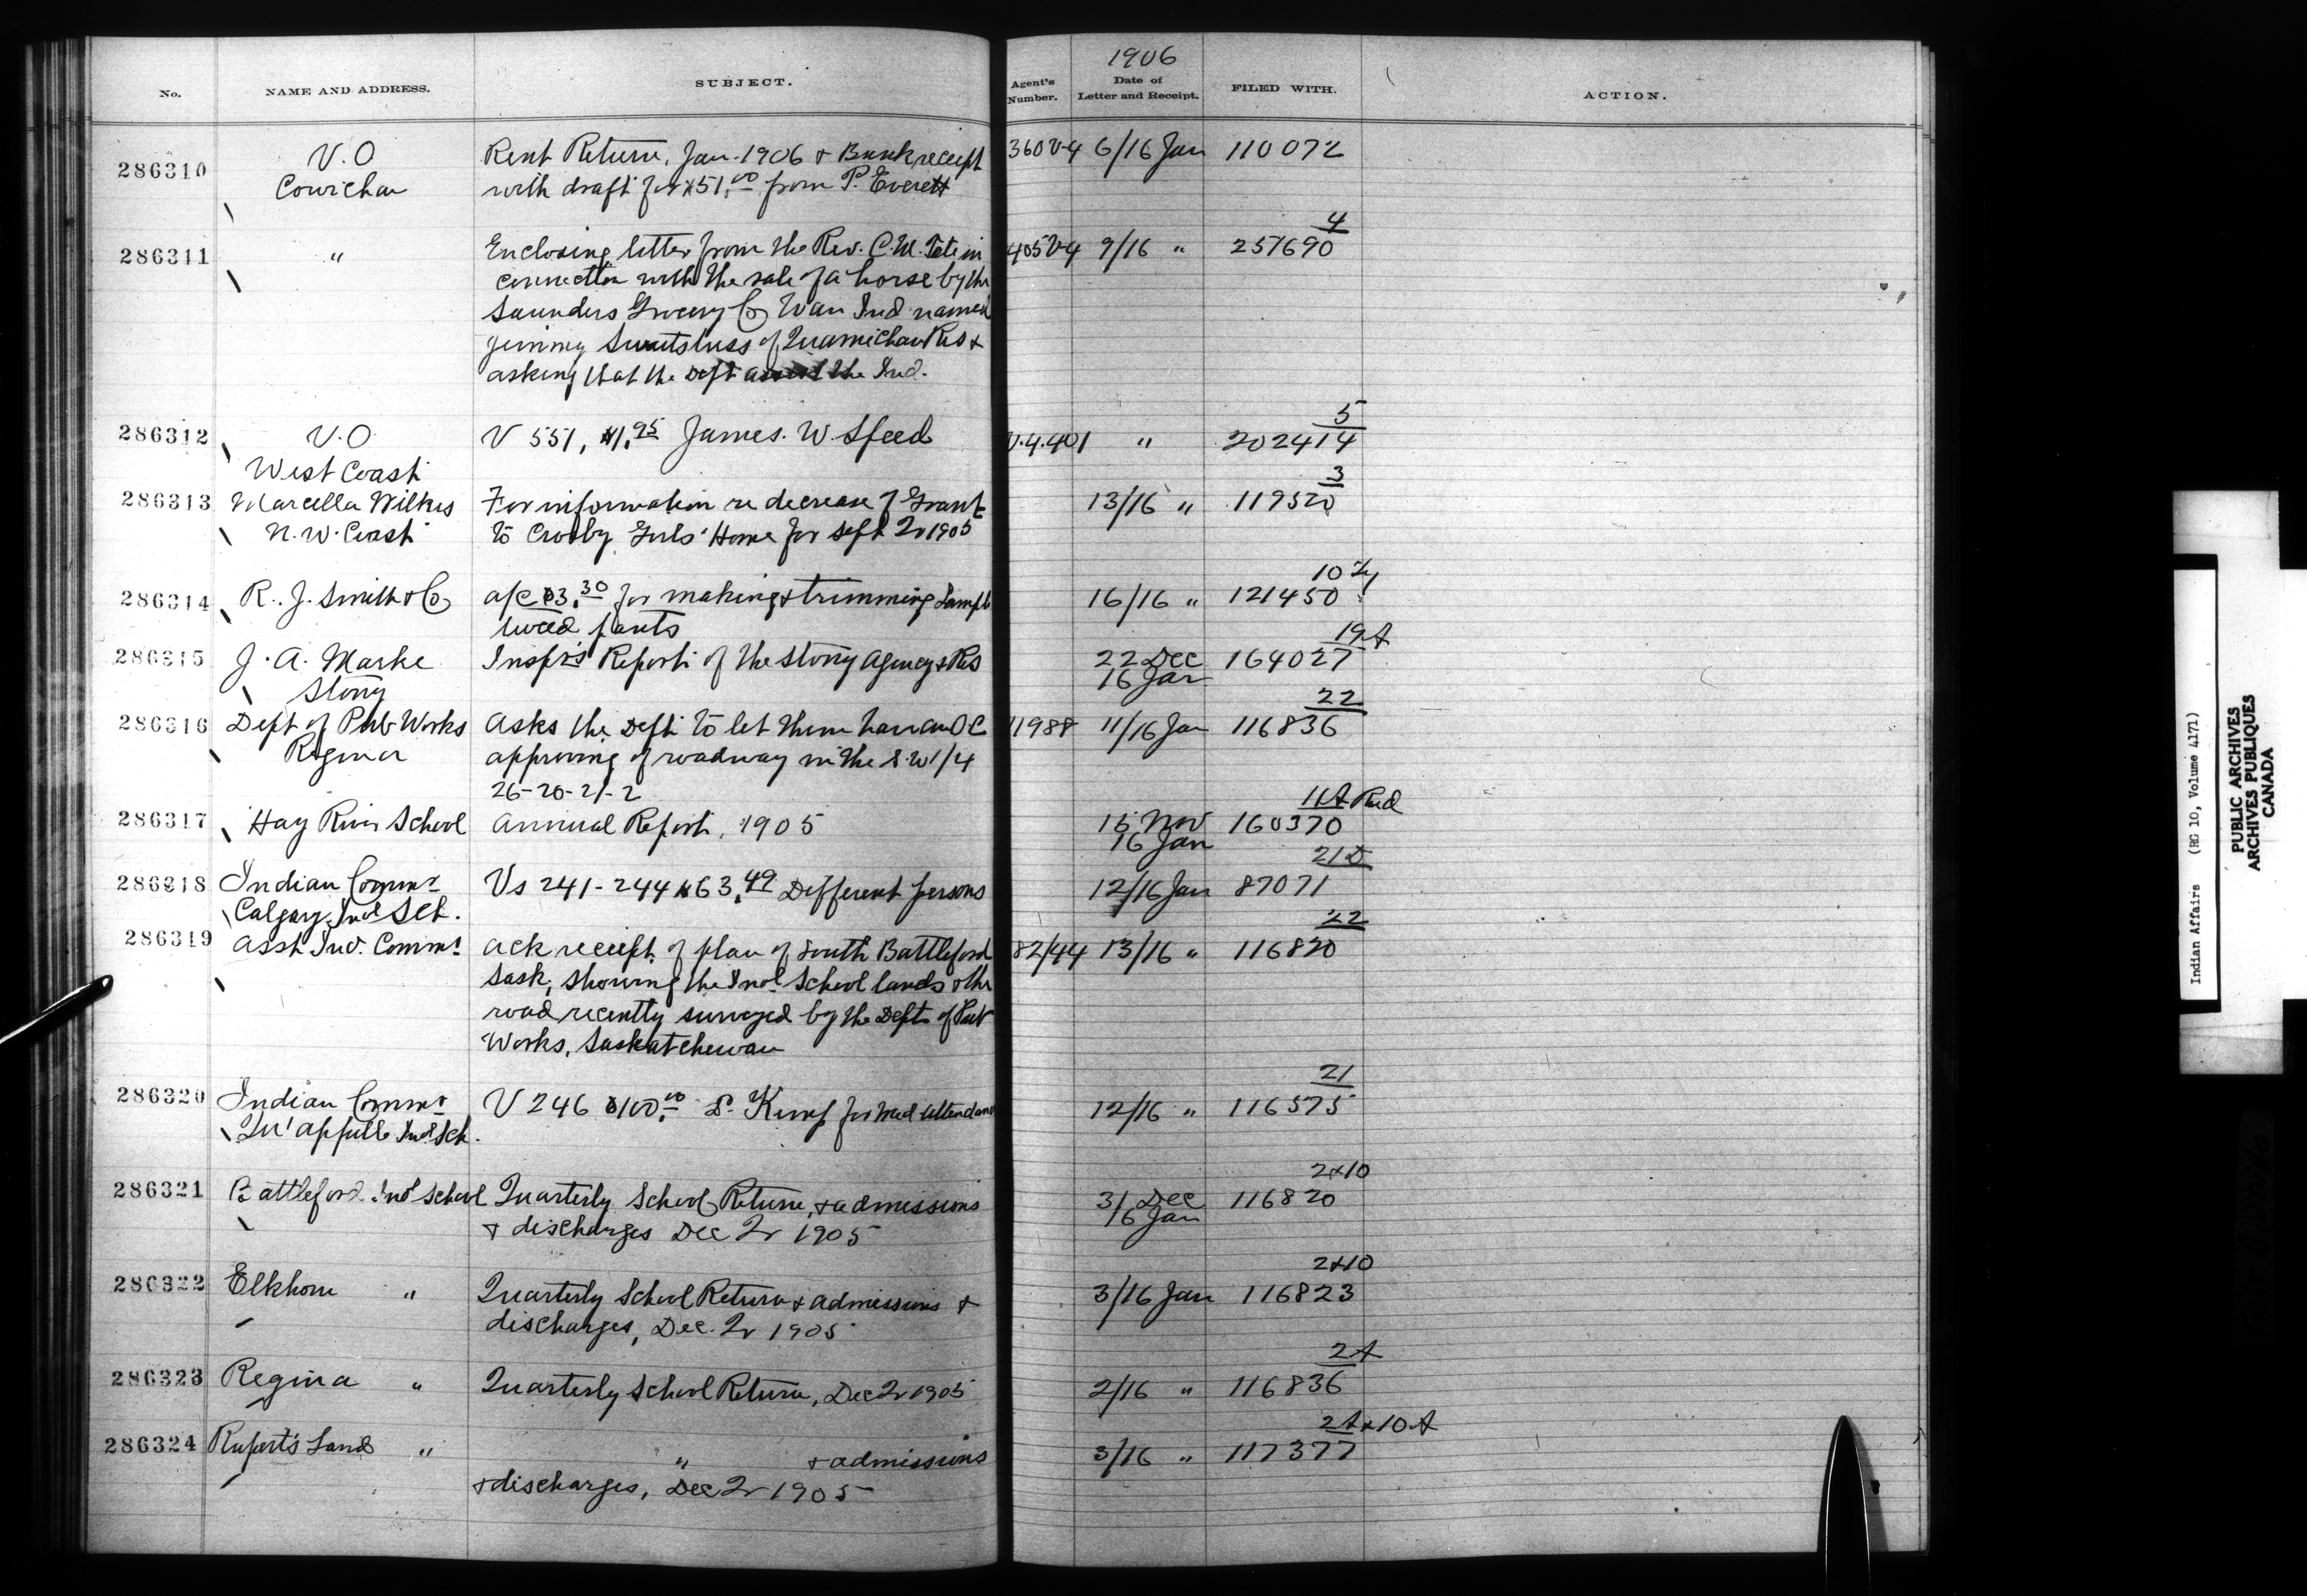 1906
No. NAME AND ADDRESS. SUBJECT. Agent's Number. Date of Letter and Receipt. FILED WITH. ACTION.
286310 V.O Rent Return, Jan. 1906 & Bank receipt 360 V4 6/16 Jan 110072
Cowichan with draft for $51.00 from P. Everett
4
286311 " Enclosing letter from the Rev. C.M. Tate in 405 V4 9/16 " 257690
connection with the sale of a horse by the
Saunders Grocery Co to an Ind named
Jimmy of Quamichan Res &
asking that the Dept assist the Ind.
5
286312 V.O V 551, $1.95 James. W. Speed V.4.401 " 202414
West Coast
3
286313 Marcella Wilkes For information re decrease of Grant 13/16 " 119520
N.W. Coast to Crosby Girls' Home for Sept Qr 1905
10
286314 R. J. Smith & Co a/c $3.30 for making & trimming Sample 16/16 " 121450
tweed pants
19A
286315 J. A. Marke Inspr's Report of the Stony Agency & Res 22 Dec 164027
Stony 16 Jan
22
286316 Dept of Pub Works Asks the Dept to let them have an O C 11988 11/16 Jan 116836
Regina approving of roadway in the S.W 1/4
26-20-21-2
11A
286317 Hay River School Annual Report, 1905 15 Nov 160370
16 Jan
21D
286318 Indian Commr Vs 241-244 $63.49 Different persons 12/16 Jan 87071
Calgary Indl Sch.
22
286319 Asst Ind. Commr Ack receipt of plan of South Battleford 82/44 13/16 " 116820
Sask, showing the Indl School lands & the
road recently surveyed by the Dept of Pub
Works, Saskatchewan
21
286320 Indian Commr V 246 $100.00 D. Kemp for Med Attendance 12/16 " 116575
Qu'appelle Indl Sch.
2&10
286321 Battleford Indl School Quarterly School Return, & admissions 31 Dec 116820
& discharges Dec Qr 1905 16 Jan
2&10
286322 Elkhorn " Quarterly School Return & admissions & 3/16 Jan 116823
discharges, Dec. Qr 1905
2A
286323 Regina " Quarterly School Return, Dec Qr 1905 2/16 " 116836
2A&10A
286324 Rupert's Land " " & admissions 3/16 " 117377
& discharges, Dec Qr 1905
Indian Affairs (RG 10, Volume 4171)
PUBLIC ARCHIVES
ARCHIVES PUBLIQUES
CANADA